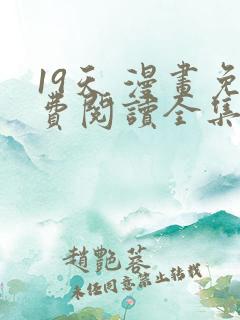 19天 漫畫免
費閱讀全集
趙艷蓉
未任同意禁止轉載